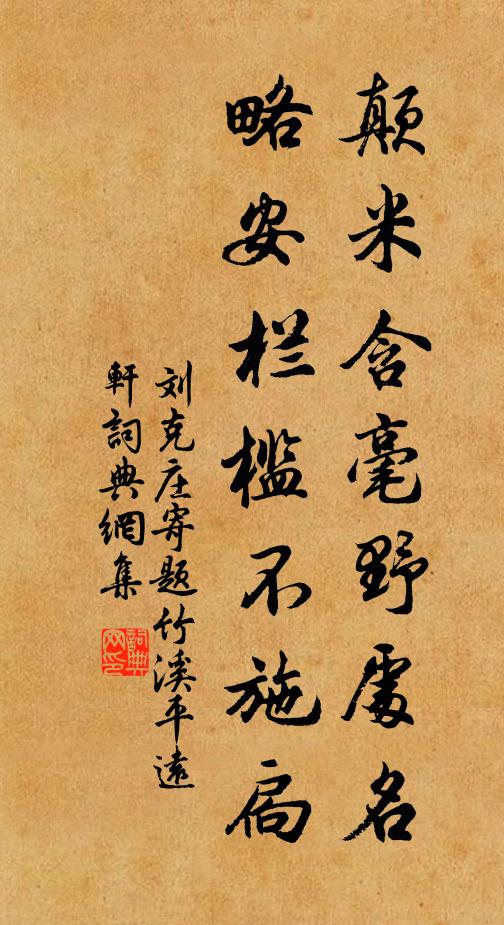 颠米含毫野处名
略安栏槛不施扃
刘克庄寄题竹溪平遠
軒詞典網集
詞典网印